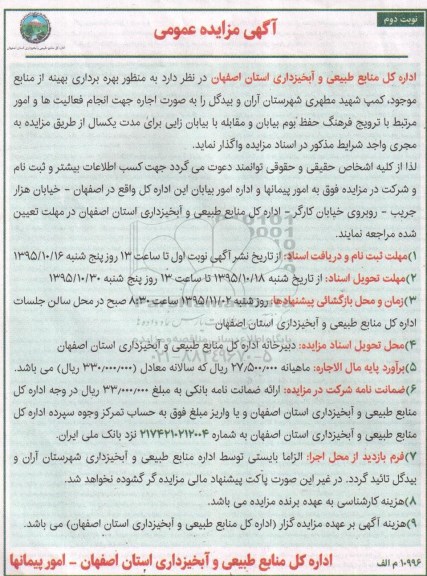 نوبت دوم
آگهی مزایده عمومی
اداره کل منابع طبیعی و آبخیزداری استان اصفهان در نظر دارد به منظور بهره برداری بهینه از منابع
موجود، کمپ شهید مطهری شهرستان آران و بیدگل را به صورت اجاره جهت انجام فعالیت ها و امور
مرتبط با ترویج فرهنگ حفظ بوم بیابان و مقابله با بیابان زایی برای مدت یکسال از طریق مزایده به
مجری واجد شرایط مذکور در اسناد مزایده واگذار نماید.
لذا از کلیه اشخاص حقیقی و حقوقی توانمند دعوت می گردد جهت کسب اطلاعات بیشتر و ثبت نام
و شرکت در مزایده فوق به امور پیمانها و اداره امور بیابان این اداره کل واقع در اصفهان – خیابان هزار
جریب – روبروی خیابان کارگر – اداره کل منابع طبیعی و آبخیزداری استان اصفهان در مهلت تعیین
شده مراجعه نمایند.
۱)مهلت ثبت نام و دریافت اسناد: از تاریخ نشر آگهی نوبت اول تا ساعت ۱۳ روز پنج شنبه ۱۳۹۵/۱۰/۱۶
۲)مهلت تحویل اسناد: از تاریخ شنبه ۱۳۹۵/۱۰/۱۸ تا ساعت ۱۳ روز پنج شنبه ۱۳۹۵/۱۰/۳۰
۳)زمان و محل بازگشائی پیشنهادها: روز شنبه ۱۳۹۵/۱۱/۰۲ ساعت ۸:۳۰ صبح در محل سالن جلسات
اداره کل منابع طبیعی و آبخیزداری استان اصفهان
۴)محل تحویل اسناد مزایده: دبیرخانه اداره کل منابع طبیعی و آبخیزداری استان اصفهان
۵)برآورد پایه مال الاجاره: ماهیانه ۲۷/۵۰۰/۰۰۰ ریال که سالانه معادل (۳۳۰/۰۰۰/۰۰۰ ریال) می باشد.
۶)ضمانت نامه شرکت در مزایده: ارائه ضمانت نامه بانکی به مبلغ ۳۳/۰۰۰/۰۰۰ ریال در وجه اداره کل
منابع طبیعی و آبخیزداری استان اصفهان و یا واریز مبلغ فوق به حساب تمرکز وجوه سپرده اداره کل
منابع طبیعی و آبخیزداری استان اصفهان به شماره ۲۱۷۴۲۱۰۲۱۲۰۰۴ نزد بانک ملی ایران.
۷)فرم بازدید از محل اجرا: الزاما بایستی توسط اداره منابع طبیعی و آبخیزداری شهرستان آران و
بیدگل تائید گردد. در غیر این صورت پاکت پیشنهاد مالی مزایده گر گشوده نخواهد شد.
۸)هزینه کارشناسی به عهده برنده مزایده می باشد.
۹)هزینه آگهی بر عهده مزایده گزار (اداره کل منابع طبیعی و آبخیزداری استان اصفهان) می باشد.
۱۰۹۹۶ م الف
اداره کل منابع طبیعی و آبخیزداری استان اصفهان - امور پیمانها